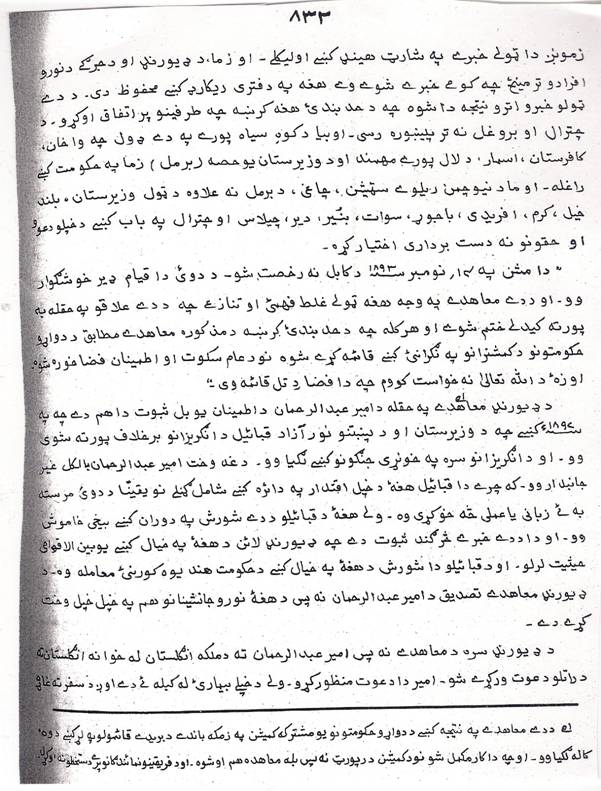 ۸۳۳
زمونږ دا ټولے خبرے په شارټ هینډ کښے اولیکلے ۔ او زما، د ډیورنډ او د جرګے د نورو
افرادو ترمینځ چه کومے خبرے شوے وے هغه په دفتری ریکارډ کښے محفوظ دی ۔ د دے
ټولو خبرو اترو نتیجه دا شوه چه د حد بندئ هغه کرښه چه طرفینو پر اتفاق اوکړو ۔ د
چترال او بروغل نه تر پیښوره رسی ۔ او بیا د کوهِ سیاه پورے په دے ډول چه واخان،
کافرستان ، اسمار ، د لال پورے مهمند او د وزیرستان یو حصه (برمل) زما په حکومت کښے
راغله ۔ او ما د نیو چمن ریلوے سټیشن ، چاغی ، د برمل نه علاوه د ټول وزیرستان ، بلند
خیل ، کرم ، افریدی ، باجوړ ، سوات ، بنیر ، دیر ، چیلاس او چترال په باب کښے د خپلو دعوو
او حقونو نه دست برداری اختیار کړه ۔
" دا مشن په ۱۴ نومبر سنه ۱۸۹۳ د کابل نه رخصت شو ۔ د دوئ دا قیام ډیر خوشگوار
وو ۔ او د دے معاهدے په وجه هغه ټولے غلط فهمئ او تنازعے چه د دے علاقو په حقله به
پورته کیدلے ختم شوے او هر کله چه د حد بندئ کرښه د مذکوره معاهدے مطابق د دواړو
حکومتونو د کمشنرانو په نګرانئ کښے قائمه کړے شوه نو عام سکوت او اطمینان فضا خوره شوه
او زۀ د الله تعالیٰ نه خواست کووم چه دا فضا د تل قائمه وی "
د ډیورنډ معاهدے په حقله د امیر عبدالرحمان د اطمینان یو بل ثبوت دا هم دے چه په
سنه ۱۸۹۷ کښے چه د وزیرستان او د پښتنو نور آزاد قبائیل د انګریزانو برخلاف پورته شوی
وو ۔ او د انګریزانو سره په خونړی جنګونو کښے لګیا وو ۔ دغه وخت امیر عبدالرحمان بالکل غیر
جانبدار وو ۔ که چرے دا قبائیل هغۀ د خپل اقتدار په دائره کښے شامل ګڼلے نو یقینًا د دوئ مرسته
به ئے زبانی یا عملی څه خو کړی وه ۔ ولے هغۀ د قبائیلو د دے شورش په دوران کښے بیخی خاموش
وو ۔ او دا د دے خبرے څرګند ثبوت دے چه ډیورنډ لائن د هغۀ په خیال کښے یو بین الاقوامی
حیثیت لرلو ۔ او د قبائیلو دا شورش د هغۀ په خیال کښے د حکومت هند یوه کورنئ معامله وه ۔ د
ډیورنډ معاهدے تصدیق د امیر عبدالرحمان نه پس د هغۀ نورو جانشینانو هم په خپل خپل وخت
کړے دے ۔
د ډیورنډ سره د معاهدے نه پس امیر عبدالرحمان ته د ملکه انګلستان له خوا نه انګلستان ته
د راتلو دعوت ورکړے شو ۔ امیر دا دعوت منظور کړو ۔ ولے د خپلے بیمارئ له کبله ئے دے اوږد سفر ته
له د دے معاهدے په نتیجه کښے د دواړو حکومتونو یو مشترکه کمیشن په زمکه باندے د بریدے قائمولو نو لړ کښے دوه
کاله لګیا وو ۔ او چه دا کار مکمل شو نو د کمیشن د رپورټ نه پس بله معاهده هم او شوه ۔ او د فریقینو نمائندګانو پرے دستخطونه اوکړل